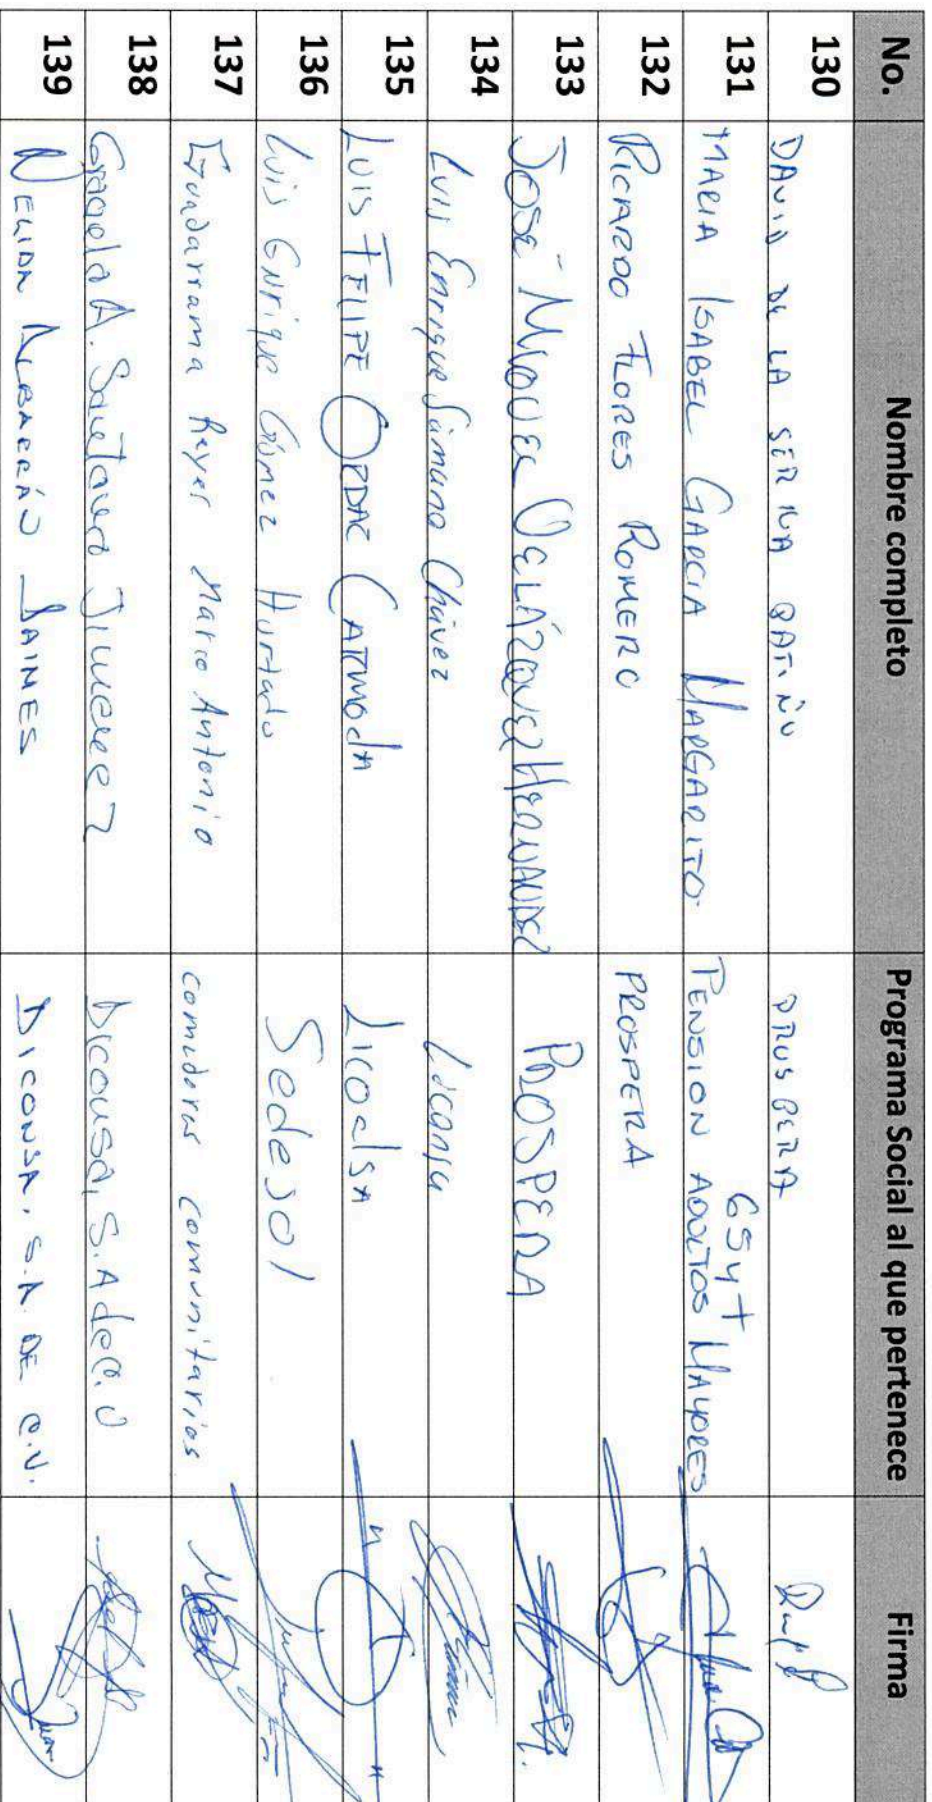 No. Nombre completo Programa Social al que pertenece Firma
130 DAVID DE LA SERNA PATIÑO PROSPERA
131 MARIA ISABEL GARCIA MARGARITO. 65 y + PENSION ADULTOS MAYORES
132 RICARDO FLORES ROMERO PROSPERA
133 JOSÉ MIGUEL VELÁZQUEZ HERNANDEZ PROSPERA
134 Luis Enrique Sámano Chávez Liconsa
135 LUIS FELIPE CARMONA
136 Luis Enrique Gómez Hurtado Sedesol
137 Guadarrama Reyes Marco Antonio comedores comunitarios
138 A. Jimenez Diconsa, S.A de C.V
139 NELIDA ALBARRÁN JAIMES DICONSA, S.A. DE C.V.